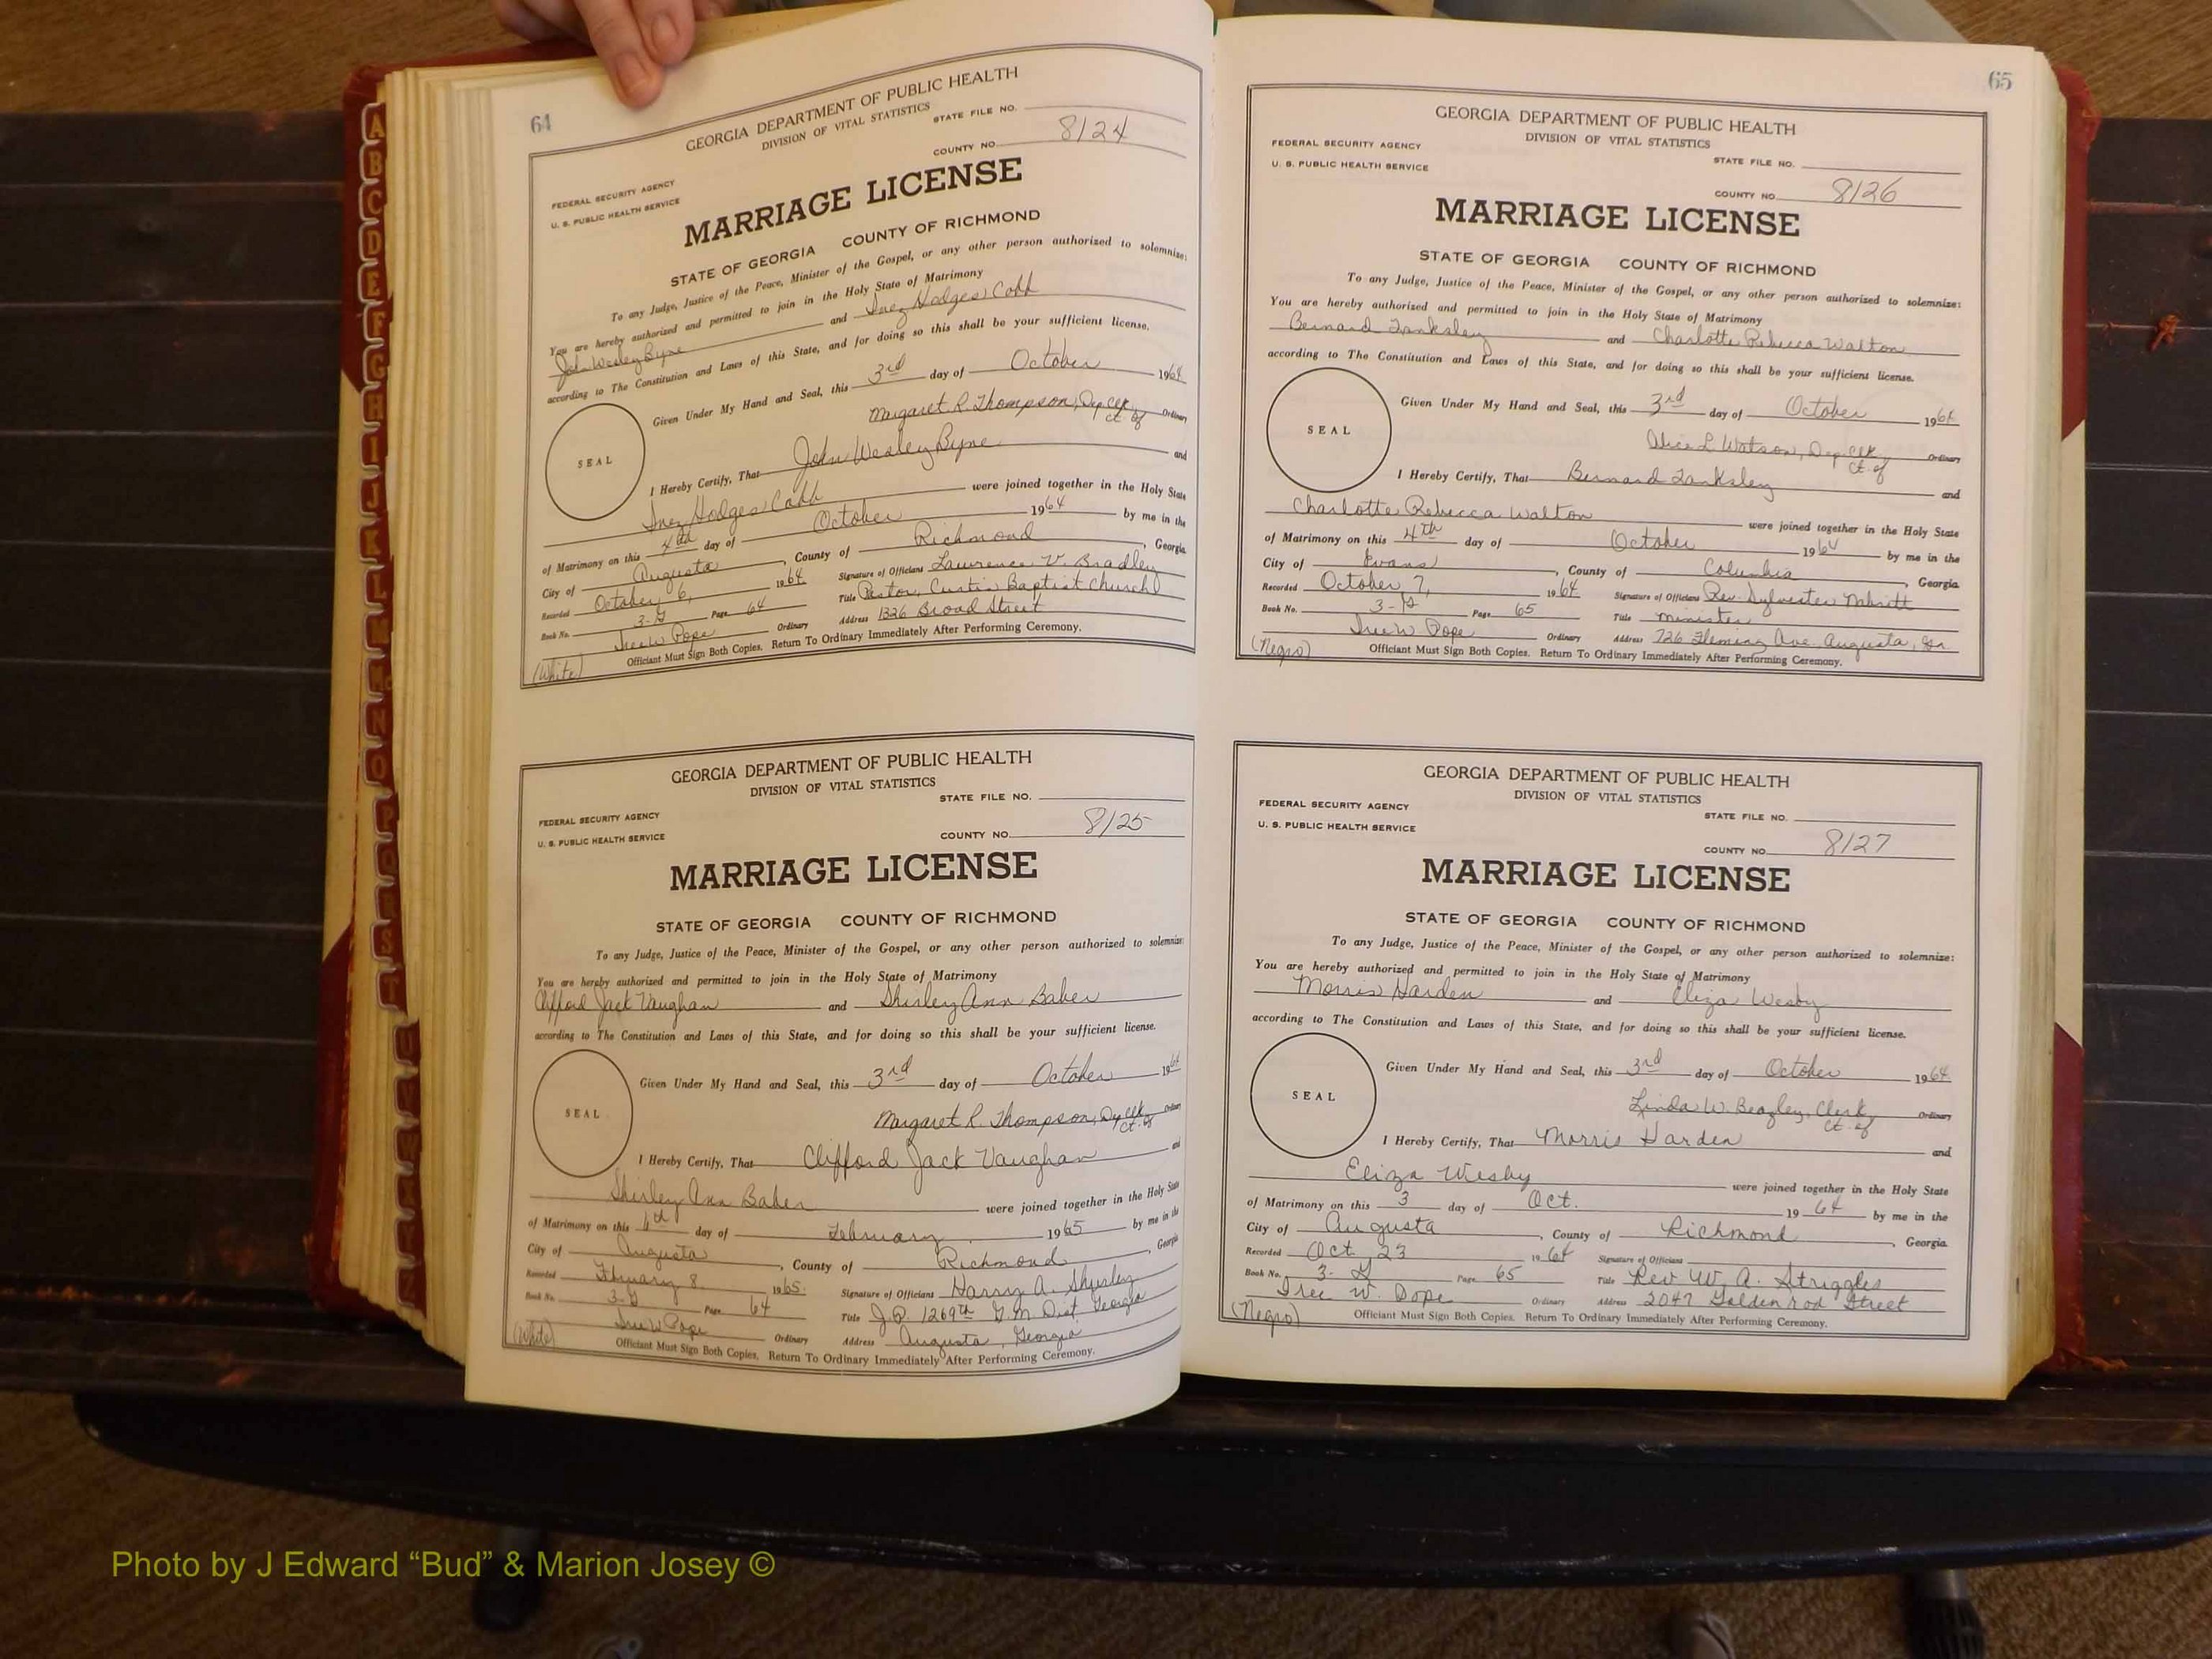 64
GEORGIA DEPARTMENT OF PUBLIC HEALTH
DIVISION OF VITAL STATISTICS
STATE FILE NO.
COUNTY NO. 8124
FEDERAL SECURITY AGENCY
U. S. PUBLIC HEALTH SERVICE
MARRIAGE LICENSE
STATE OF GEORGIA COUNTY OF RICHMOND
To any Judge, Justice of the Peace, Minister of the Gospel, or any other person authorized to solemnize:
You are hereby authorized and permitted to join in the Holy State of Matrimony
John Wesley Byne and Inez Hodges Cobb
according to The Constitution and Laws of this State, and for doing so this shall be your sufficient license.
Given Under My Hand and Seal, this 3rd day of October 1964
Margaret R. Thompson, Dep Clk Ordinary
ct. of
SEAL
I Hereby Certify, That John Wesley Byne and
Inez Hodges Cobb were joined together in the Holy State
of Matrimony on this 4th day of October 1964 by me in the
City of Augusta, County of Richmond, Georgia
Recorded October 6, 1964 Signature of Officiant Lawrence V. Bradley
Book No. 3-G Page 64 Title Pastor, Curtis Baptist Church
Iree W. Pope Ordinary Address 1326 Broad Street
(White) Officiant Must Sign Both Copies. Return To Ordinary Immediately After Performing Ceremony.
GEORGIA DEPARTMENT OF PUBLIC HEALTH
DIVISION OF VITAL STATISTICS
STATE FILE NO.
FEDERAL SECURITY AGENCY
U. S. PUBLIC HEALTH SERVICE
COUNTY NO. 8125
MARRIAGE LICENSE
STATE OF GEORGIA COUNTY OF RICHMOND
To any Judge, Justice of the Peace, Minister of the Gospel, or any other person authorized to solemnize:
You are hereby authorized and permitted to join in the Holy State of Matrimony
Clifford Jack Vaughan and Shirley Ann Baber
according to The Constitution and Laws of this State, and for doing so this shall be your sufficient license.
Given Under My Hand and Seal, this 3rd day of October 1964
Margaret R. Thompson, Dep Clk Ordinary
ct. of
SEAL
I Hereby Certify, That Clifford Jack Vaughan and
Shirley Ann Baber were joined together in the Holy State
of Matrimony on this day of February 1965 by me in the
City of Augusta, County of Richmond, Georgia
Recorded February 8 1965. Signature of Officiant Harry A.
Book No. 3-G Page 64 Title J.P. 1269th G.M. Dist Georgia
Iree W Pope Ordinary Address Augusta, Georgia
(White) Officiant Must Sign Both Copies. Return To Ordinary Immediately After Performing Ceremony.
65
GEORGIA DEPARTMENT OF PUBLIC HEALTH
DIVISION OF VITAL STATISTICS
FEDERAL SECURITY AGENCY
U. S. PUBLIC HEALTH SERVICE
STATE FILE NO.
COUNTY NO. 8126
MARRIAGE LICENSE
STATE OF GEORGIA COUNTY OF RICHMOND
To any Judge, Justice of the Peace, Minister of the Gospel, or any other person authorized to solemnize:
You are hereby authorized and permitted to join in the Holy State of Matrimony
Bernard Tanksley and Charlotte Rebecca Walton
according to The Constitution and Laws of this State, and for doing so this shall be your sufficient license.
Given Under My Hand and Seal, this 3rd day of October 1964
Alice L. Watson, Dep Clk Ordinary
ct. of
SEAL
I Hereby Certify, That Bernard Tanksley and
Charlotte Rebecca Walton were joined together in the Holy State
of Matrimony on this 4th day of October 1964 by me in the
City of Evans, County of Columbia, Georgia
Recorded October 7, 1964 Signature of Officiant Rev. Sylvester
Book No. Page 65 Title minister
Iree W Pope Ordinary Address 726 Fleming Ave. Augusta, Ga
(Negro) Officiant Must Sign Both Copies. Return To Ordinary Immediately After Performing Ceremony.
GEORGIA DEPARTMENT OF PUBLIC HEALTH
DIVISION OF VITAL STATISTICS
FEDERAL SECURITY AGENCY
U. S. PUBLIC HEALTH SERVICE
STATE FILE NO.
COUNTY NO. 8127
MARRIAGE LICENSE
STATE OF GEORGIA COUNTY OF RICHMOND
To any Judge, Justice of the Peace, Minister of the Gospel, or any other person authorized to solemnize:
You are hereby authorized and permitted to join in the Holy State of Matrimony
Morris Harden and Eliza Wesby
according to The Constitution and Laws of this State, and for doing so this shall be your sufficient license.
Given Under My Hand and Seal, this 3rd day of October 1964
Linda W. Beazley, Clerk, Ordinary
ct. of
SEAL
I Hereby Certify, That Morris Harden and
Eliza Wesby were joined together in the Holy State
of Matrimony on this 3 day of Oct. 1964 by me in the
City of Augusta, County of Richmond, Georgia
Recorded Oct 23 1964 Signature of Officiant
Book No. 3-G Page 65 Title Rev W. A. Struggles
Iree W. Pope Ordinary Address 2047 Golden rod Street
(Negro) Officiant Must Sign Both Copies. Return To Ordinary Immediately After Performing Ceremony.
A
B
C
D
E
F
G
H
I
J
K
L
N
O
P
R
S
T
Photo by J Edward “Bud” & Marion Josey ©